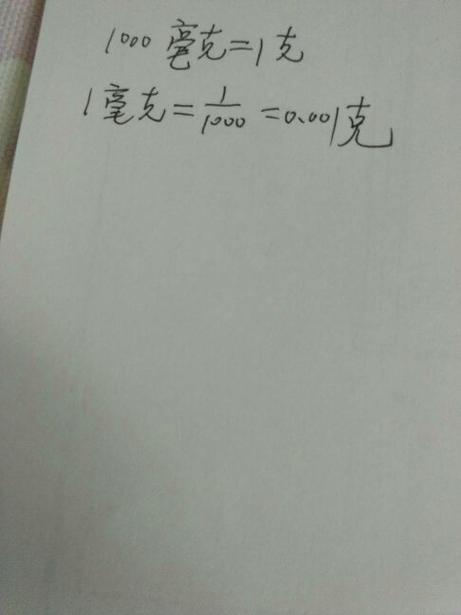 1000毫克=1克
1毫克=1/1000=0.001克